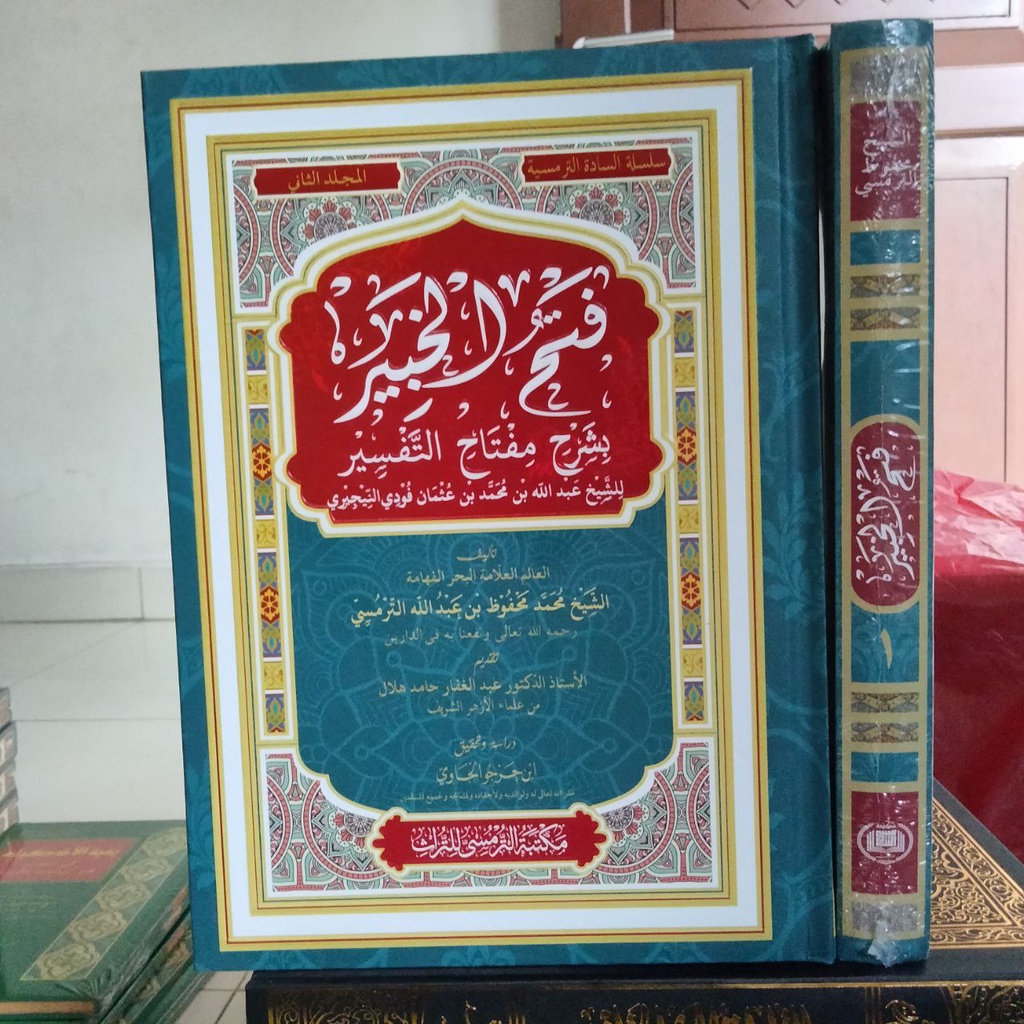 سلسلة السادة الترمسية
المجلد الثاني
فَتْحُ الْخَبِيْرِ
بِشَرْحِ مِفْتَاحِ التَّفْسِيْرِ
لِلشَّيْخِ عَبْدِ الله بْنِ مُحَمَّدِ بْنِ عُثْمَان فُودِي النِّيْجِيْرِي
تأليف
العالم العلامة البحر الفهامة
الشَّيْخِ مُحَمَّد مَحْفُوْظ بْنِ عَبْدُ الله التَّرْمَسِيّ
رحمه الله تعالى ونفعنا به في الدارين
تقديم
الأستاذ الدكتور عبد الغفار حامد هلال
من علماء الأزهر الشريف
دراسة وتحقيق
ابن حرجو الجاوي
غفر الله تعالى له ولوالديه
مكتبة الترمسي للتراث
الشيخ
محفوظ
الترمسي
فَتْحُ الْخَبِيْرِ
١